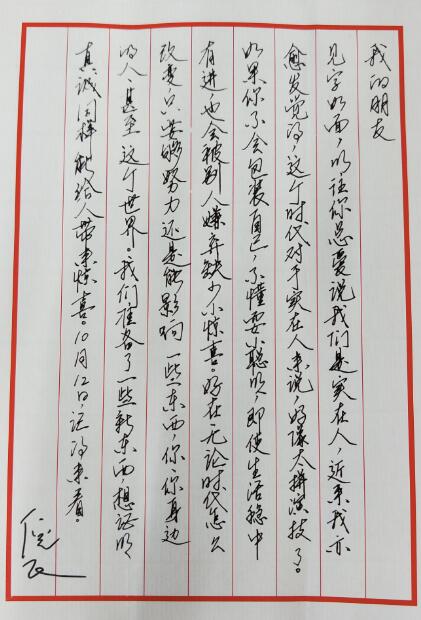 我的朋友
见字如面，以往你总爱说我们是实在人，近来我亦
愈发觉得，这个时代对于实在人来说，好像太拼演技了。
如果你不会包装自己，不懂耍小聪明，即使生活稳中
有进也会被别人嫌弃缺少小惊喜。好在无论时代怎么
改变，只要够努力还是能影响一些东西，你，你身边
的人、甚至这个世界。我们准备了一些新东西，想证明
真诚同样能给人带来惊喜。10月12日，记得来看。